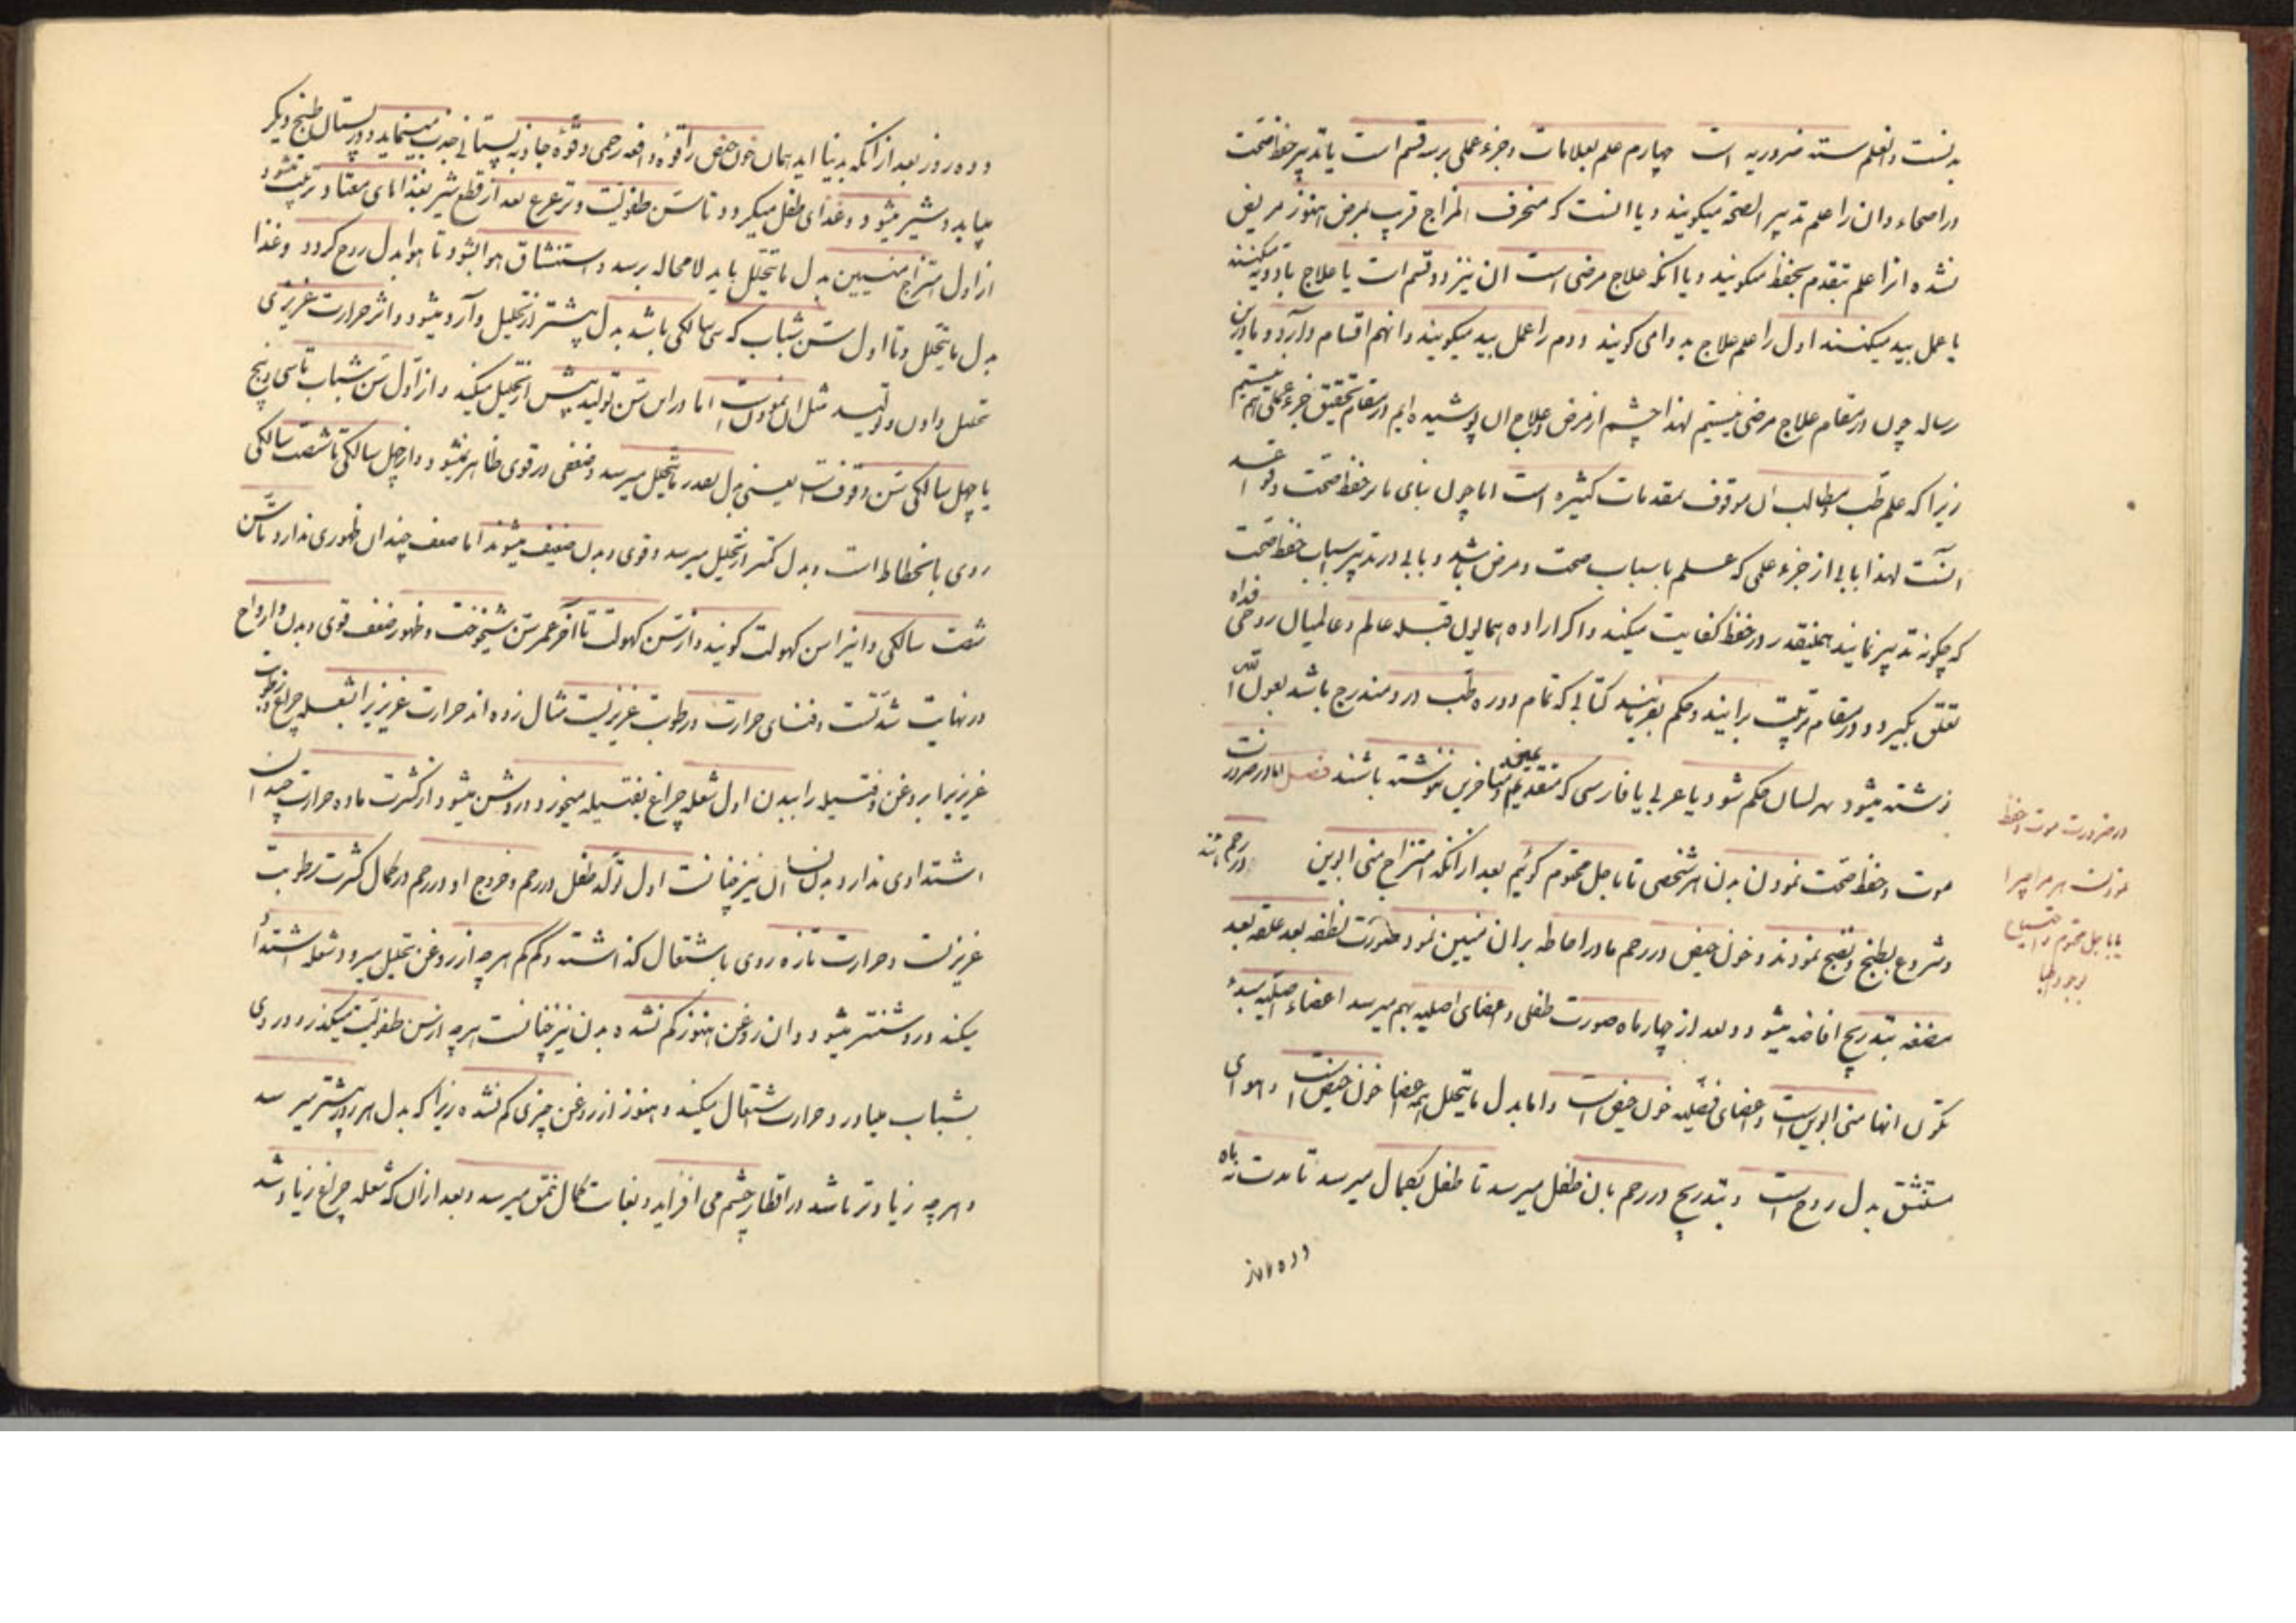 بدنست و انعلم سته ضروریه است چهارم علم بعلامات و جزء عملی بر سه قسم است یا تدبیر حفظ صحت
در اصحاء و ان را علم تدبیر الصحة میکویند و یا انست که منحرف المزاج قریب بمرض هنوز مریض
نشده انرا علم تقدم بحفظ میکویند و یا انکه علاج مرضی است ان نیز دو قسم است یا علاج بادویه میکنند
یا عمل بید میکنند اول را علم علاج بدوا می کویند و دوم را عمل بید میکویند و انهم اقسام دارد و ما در این
رساله چون در مقام علاج مرضی نیستیم لهذا چشم از مرض و علاج ان پوشیده ایم در مقام تحقیق جزء عملی هم نیستیم
زیرا که علم طب و مطالب ان موقوف بمقدمات کثیره است اما چون بنای ما بر حفظ صحت و قواعد
انست لهذا بابی از جزء علمی که علم باسباب صحت و مرض باشد و بابی در تدبیر اسباب حفظ صحت
که چکونه تدبیر نمایند همینقدر در حفظ کفایت میکند و اکر اراده همایون قبله عالم و عالمیان روحی فداه
تعلق بکیرد و در مقام تربیت برایند و حکم بفرمایند کتابی که تمام دوره طب در او مندرج باشد بعون الله
نوشته میشود بهر لسان حکم شود یا عربی یا فارسی که متقدمین و متاخرین ننوشته باشند فصل اما در ضرورت
موت و حفظ صحت نمودن بدن هر شخصی تا باجل محتوم کوئیم بعد از انکه امتزاج منی ابوین در رحم باشد
و شروع بطبخ و نضج نمودند و خون حیض در رحم مادر احاطه بران منیین نمود صورت نطفه بعد علقه بعد
مضغه بتدریج افاضه میشود و بعد از چهار ماه صورت طفلی و اعضای اصلیه بهم میرسد اعضاء اصلیه مبدء
تکون انها منی ابوین است و اعضای فضلیه خون حیض است و اما بدل ما یتحلل همه اعضا خون حیض است و هوای
مستنشق بدل روح است و بتدریج در رحم بان طفل میرسد تا طفل بکمال میرسد تا مدت نه ماه
و ده روز
در ضرورت موت و حفظ
نمودن هر مزاجی را
تا باجل محتوم و احتیاج
بوجود اطبا
و ده روز بعد از انکه بدنیا اید همان خون حیض را قوه دافعه رحمی و قوه جاذبه پستانی جذب مینماید و در پستان طبخ دیکر
میابد و شیر میشود و غذای طفل میکردد تا سن طفولیت و ترعرع بعد از قطع شیر بغذاهای معتاد تربیت میشود
از اول امتزاج منیین بدل ما یتحلل باید لامحاله برسد و استنشاق هوا بشود تا هوا بدل روح کردد و غذا
بدل ما یتحلل و تا اول سن شباب که سی سالکی باشد بدل بیشتر از تحلیل وارد میشود و اثر حرارت غریزی
تحلیل دادن و تولید مثل ان نمودن است اما در این سن تولید بیش از تحلیل میکند و از اول سن شباب تا سی و پنج
یا چهل سالکی سن وقوفست یعنی بدل بقدر ما یتحلل میرسد و ضعفی در قوی ظاهر نمیشود و از چهل سالکی تا شصت سالکی
روی بانحطاط است و بدل کمتر از تحلیل میرسد و قوی و بدن ضعیف میشوند اما ضعف چندان ظهوری ندارد تا سن
شصت سالکی و اینرا سن کهولت کویند و از سن کهولت تا اخر عمر سن شیخوخت و ظهور ضعف قوی و بدن و ارواح
در نهایت شدتست و فنای حرارت و رطوبت غریزیست مثال زده اند حرارت غریزیرا بشعله چراغ و رطوبت
غریزیرا بروغن و فتیله را ببدن اول شعله چراغ بفتیله میخورد و روشن میشود از کثرت ماده حرارت چندان
اشتدادی ندارد بدن انسان نیز چنانست اول تولد طفل در رحم و خروج او در رحم در کمال کثرت رطوبت
غریزیست و حرارت تازه روی باشتعال کذاشته و کم کم هر چه از روغن تحلیل میرود شعله اشتداد
میکند و روشنتر میشود و ان روغن هنوز کم نشده بدن نیز چنانست هر چه از سن طفولیت میکذرد و روی
بشباب میاورد و حرارت اشتعال میکند و هنوز از روغن چیزی کم نشده زیرا که بدل هر روز بیشتر میرسد
و هر چه زیادتر باشد در اقطار جسم می افزاید و بغایت کمال نمو میرسد و بعد از ان که شعله چراغ زیاد شد